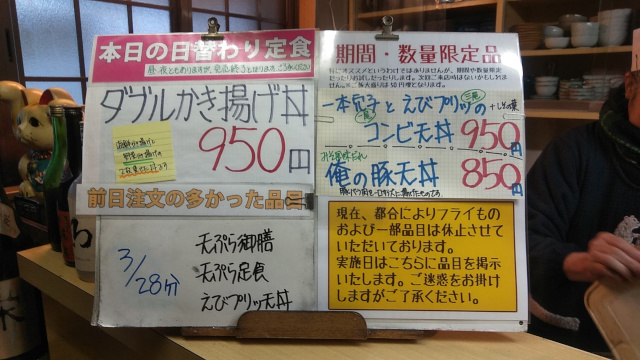 本日の日替わり定食
昼・夜ともありますが、完売終了となります。ご了承ください
ダブルかき揚げ丼
950円
海鮮かき揚げと
野菜かき揚げの
前日注文の多かった品目
3/28分
天ぷら御膳
天ぷら定食
えびプリッツ天丼
期間・数量限定品
特にオススメというわけではありませんが、期間や数量限定
一本穴子とえびプリッツの+しその葉
コンビ天丼 950円
俺の豚天丼 850円
現在、都合によりフライもの
および一部品目は休止させて
いただいております。
実施日はこちらに品目を掲示
いたします。ご迷惑をお掛け
しますがご了承ください。